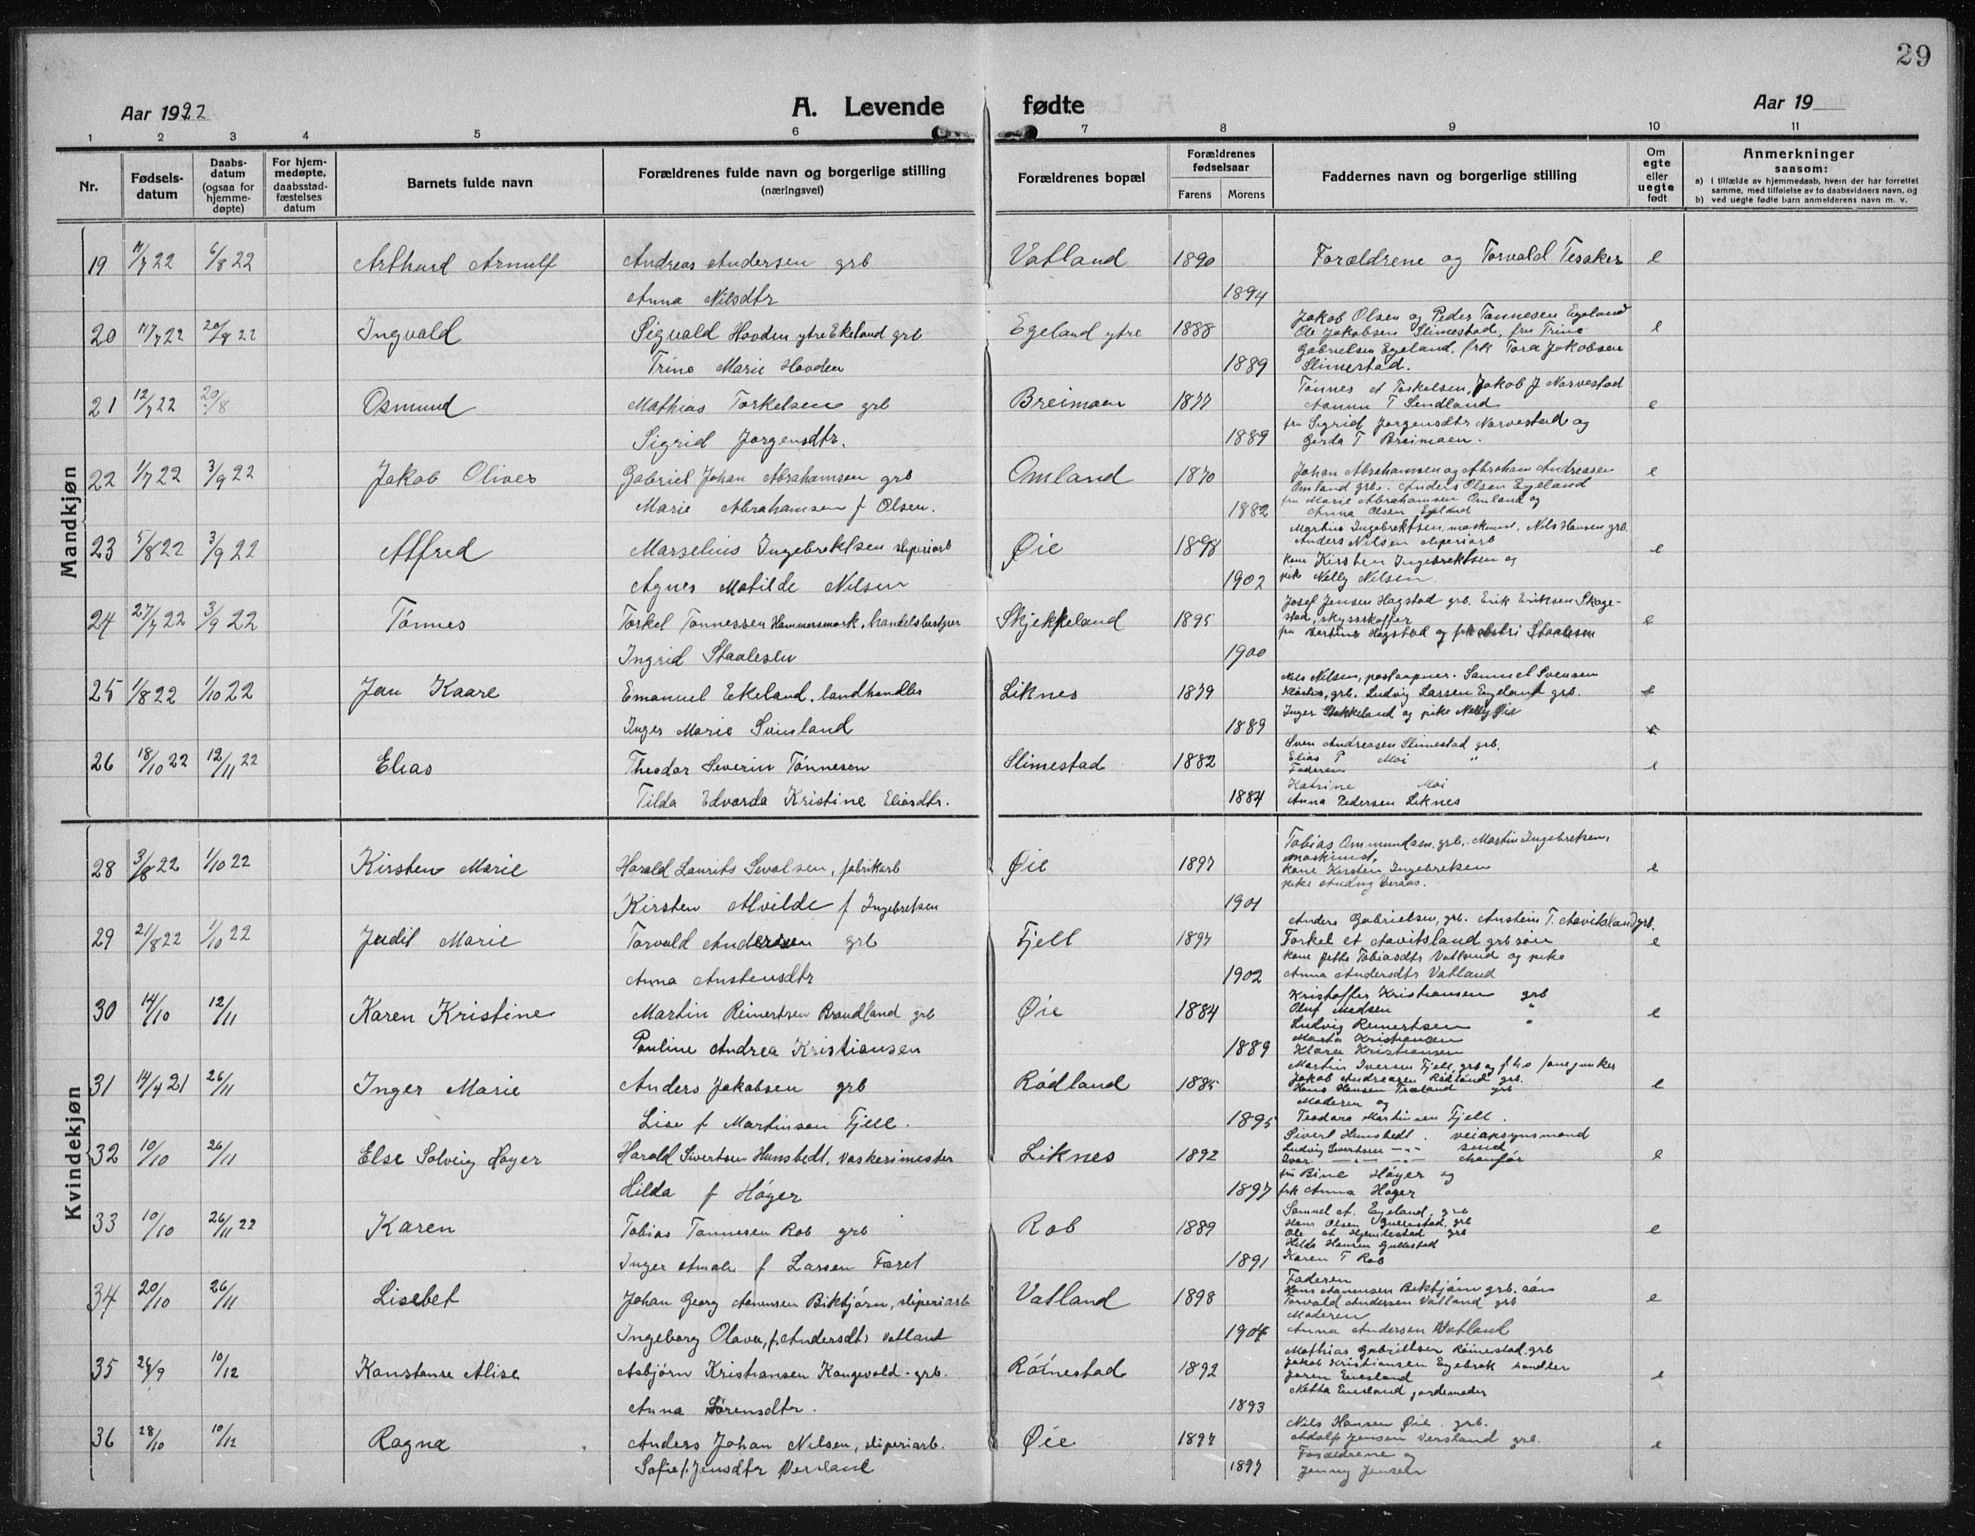 29
Aar 1922 A. Levende fødte Aar 19
1 2 3 4 5 6 7 8 9 10 11
Nr. Fødselsdatum Daabsdatum (ogsaa for hjemmedøpte) For hjemmedøpte, daabsstadfæstelses datum Barnets fulde navn Forældrenes fulde navn og borgerlige stilling (næringsvei) Forældrenes bopæl Forældrenes fødselsaar Farens Morens Faddernes navn og borgerlige stilling Om egte eller uegte født Anmerkninger saasom:
a) i tilfælde av hjemmedaab, hvem der har forrettet samme, med tilføielse av to daabsvidners navn, og
b) ved uegte fødte barn anmelderens navn m. v.
Mandkjøn
19 11/7 22 6/8 22 Arthurd Arnulf Andreas Andersen grb Vatland 1890 Forældrene og Torvald Tesaker e
Anna Nilsdtr 1894
20 11/7 22 20/8 22 Ingvald Sigvald Hovden ytre Ekeland grb Egeland ytre 1888 Jakob Olsen og Peder Tønnesen Egeland e
Ole Jakobsen Slimestad, fru Trine
Trine Marie Hovden 1889 Gabrielsen Egeland, frk Tora Jakobsen
Slimestad.
21 12/7 22 20/8 Osmund Mathias Torkelsen grb Breimoen 1877 Tønnes A Torkelsen, Jakob J Narvestad e
T Sendland
Sigrid Jørgensdtr. 1889 fru Sigrid Jørgensdtr Narvestad og
Gerda T Breimoen.
22 1/7 22 3/9 22 Jakob Oliver Gabriel Johan Abrahamsen grb Omland 1870 Johan Abrahamsen og Abraham Andreassen e
Omland grb. Anders Olsen Egeland
Marie Abrahamsen f Olsen. 1882 fru Marie Abrahamsen Omland og
Anna Olsen Egeland
23 5/8 22 3/9 22 Alfred Marselius Ingebrektsen sliperiarb Øie 1898 Martin Ingebrektsen, maskinist. Nils Hansen grb. e
Anders Nilsen sliperiarb
Agnes Matilde Nilsen 1902 kone Kirsten Ingebrektsen og
pike Nelly Nilsen.
24 27/7 22 3/9 22 Tønnes Torkel Tønnessen Hammersmark, handelsbestyrer Skjekkeland 1895 Josef Jensen Hagstad grb. Erik Eriksen Skogestad, skyssskaffer e
Ingrid Staalesen 1900 fru Bertine Hagstad og frk Astri Staalesen
25 1/8 22 1/10 22 Jan Kaare Emanuel Ekeland, landhandler Liknes 1879 Nils Nilsen, postaapner. Samuel Svensen e
grb. Ludvig Larsen Egeland grb.
Inger Marie Svinland 1889 Inger Stakkeland og pike Nelly Øie
26 18/10 22 12/11 22 Elias Theodor Severin Tønnesen Slimestad 1882 Sven Andreasen Slimestad grb. e
Elias P Moi "
Faderen
Tilda Edvarda Kristine Eliasdtr. 1884 Katrine Moi
Anna Pedersen Liknes
Kvindekjøn
28 3/8 22 1/10 22 Kirsten Marie Harald Laurits Sevalsen, fabrikarb Øie 1897 Tobias Ommundsen, grb., Martin Ingebretsen, e
maskinist,
kone Kirsten Ingebretsen
Kirsten Alvilde f Ingebretsen 1901
29 21/8 22 1/10 22 Judit Marie Torvald Andersen grb Fjell 1897 Anders Gabrielsen, grb. Austein T. Aavitsland grb. e
Torkel A Aavitsland grb søn
kone Jette Tobiasdtr Vatland og pike
Anna Austensdtr 1902 Anna Andersdtr Vatland
30 14/10 12/11 Karen Kristine Martin Reinertsen Brandland grb Øie 1884 Kristoffer Kristiansen grb e
Oluf Madsen "
Ludvig Reinertsen "
Pauline Andrea Kristiansen 1889 Marta Kristiansen
Klara Kristiansen
31 14/4 21 26/11 Inger Marie Anders Jakobsen grb Rødland 1885 Martin Iversen Fjell, grb og e
Jakob Andreasen Rødland grb.
Hans Hansen Træland grb
Moderen og
Lise f Martinsen Fjell. 1895 Teodora Martinsen Fjell.
32 10/10 26/11 Else Solveig Høyer Harald Sivertsen Hunsbedt, vaskerimester Liknes 1892 Sivert Hunsbedt. veiopsynsmand e
Ludvig Sivertsen —"— smed
Ivar —"— —"— chaufør
Hilda f Høyer 1897 fru Bine Høyer og
frk Anna Høyer
33 10/10 26/11 22 Karen Tobias Tønnesen Rob grb Rob 1889 Samuel A. Egeland, grb e
Hans Olsen Gullestad, grb
Ole A Hjemlestad grb
Hilda Hansen Gullestad
Inger Amalie f Larsen Faret 1891 Karen T Rob
34 20/10 26/11 Lisebet Johan Georg Asmunsen Bikbjørn, sliperiarb Vatland 1898 Faderen e
Hans Asmunsen Bekbjørn grb. søn
Torvald Andersen Vatland grb
Moderen
Ingeborg Olava, f. Andersdtr Vatland 1904 Anna Andersen Vatland
35 24/9 10/12 Konstanse Alise Asbjørn Kristiansen Kongevold. grb. Røinestad 1892 Mathias Gabrielsen Røinestad. grb e
Jakob Kristiansen Egebrok handler
Jøren Eiesland
Anna Sørensdtr. 1893 Netta Eiesland jordemoder
36 28/10 10/12 Ragna Anders Johan Nilsen, sliperiarb. Øie 1897 Nils Hansen Øie. grb. e
Adolf Jensen Versland grb.
Sofie f. Jensdtr Versland 1897 Forældrene og
Jenny Jensen